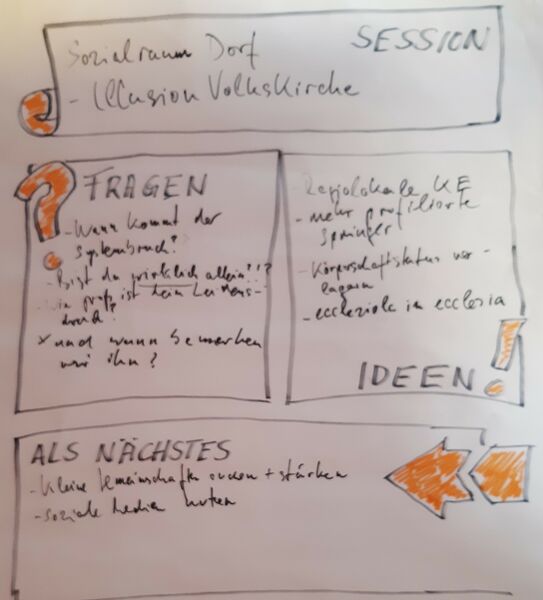 SESSION
Sozialraum Dorf
- Illusion Volkskirche
? FRAGEN
- Wann kommt der
Systembruch?
- Bist du wirklich allein?!?
- Wie groß ist dein Leidens-
druck?
x und wann bemerken
wir ihn?
- Regiolokale KE
- mehr profilierte
Springer
- Körperschaftstatus ver-
lagern
- ecclesiola in ecclesia
IDEEN !
ALS NÄCHSTES
- Kleine Gemeinschaften suchen + stärken
- Soziale Medien nutzen